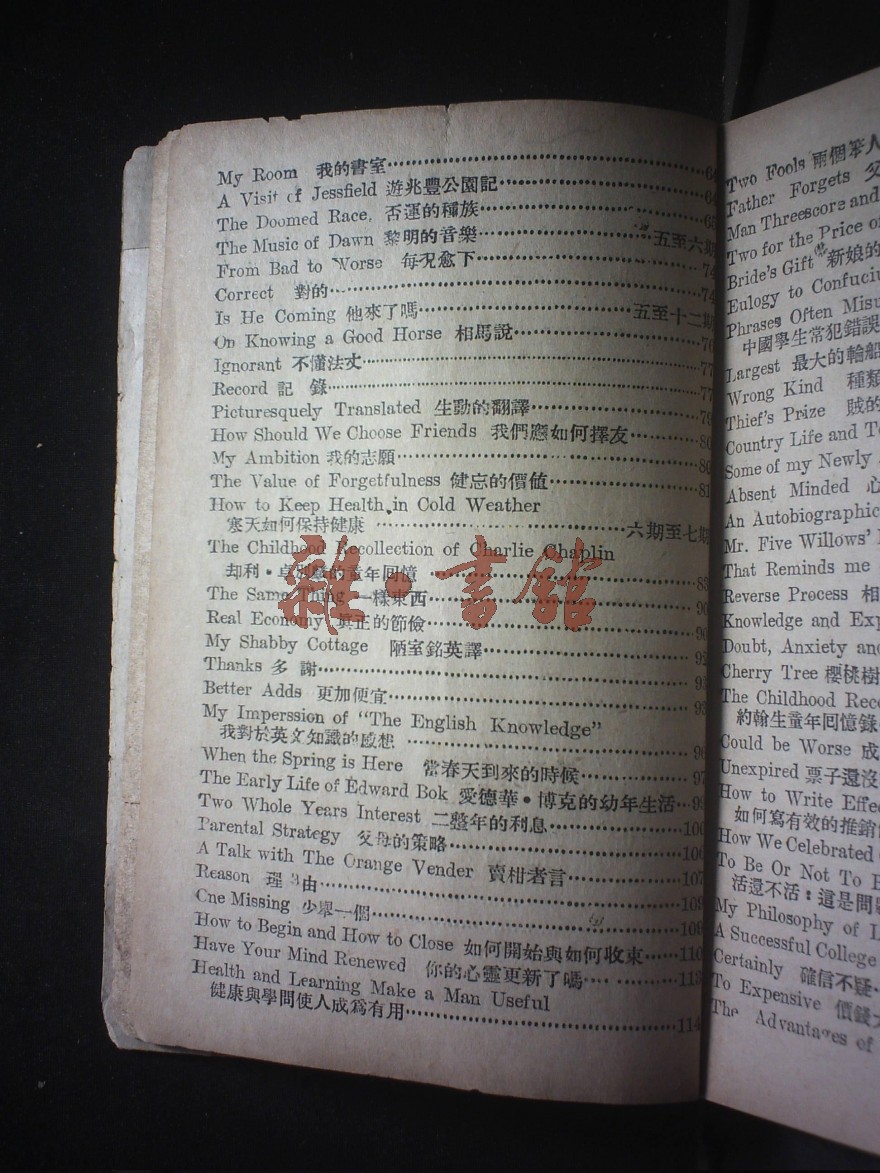 My Room 我的書室 64
A Visit of Jessfield 遊兆豐公園記 64
The Doomed Race, 否運的種族 65
The Music of Dawn 黎明的音樂 五至六期
From Bad to Worse 每况愈下 74
Correct 對的 74
Is He Coming 他來了嗎 五至十二期
On Knowing a Good Horse 相馬說 76
Ignorant 不懂法文 77
Record 記 錄 77
Picturesquely Translated 生動的翻譯 79
How Should We Choose Friends 我們應如何擇友 80
My Ambition 我的志願 80
The Value of Forgetfulness 健忘的價値 81
How to Keep Health in Cold Weather
寒天如何保持健康 六期至七期
The Childhood Recollection of Charlie Chaplin
却利·卓別麟的童年回憶 83
The Same Thing 一樣東西 90
Real Economy 眞正的節儉 90
My Shabby Cottage 陋室銘英譯 92
Thanks 多 謝 93
Better Adds 更加便宜 93
My Imperssion of "The English Knowledge"
我對於英文知識的感想 96
When the Spring is Here 當春天到來的時候 97
The Early Life of Edward Bok 愛德華·博克的幼年生活 99
Two Whole Years Interest 二整年的利息 100
Parental Strategy 父母的策略 106
A Talk with The Orange Vender 賣柑者言 107
Reason 理 由 109
One Missing 少擧一個 109
How to Begin and How to Close 如何開始與如何收束 110
Have Your Mind Renewed 你的心靈更新了嗎 113
Health and Learning Make a Man Useful
健康與學問使人成爲有用 114
Two Fools 兩個笨人
Father Forgets 父
Man Threescore and
Two for the Price of
Bride's Gift 新娘的
Eulogy to Confuciu
Phrases Often Misu
中國學生常犯錯誤
Largest 最大的輪船
Wrong Kind 種類
Thief's Prize 賊的
Country Life and To
Some of my Newly
Absent Minded 心
An Autobiographic
Mr. Five Willows'
That Reminds me
Reverse Process 相
Knowledge and Exp
Doubt, Anxiety and
Cherry Tree 櫻桃樹
The Childhood Reco
約翰生童年回憶錄
Could be Worse 成
Unexpired 票子還沒
How to Write Effec
如何寫有效的推銷
How We Celebrated
To Be Or Not To B
活還不活：這是問
My Philosophy of L
A Successful College
Certainly 確信不疑
To Expensive 價錢太
The Advantages of
雜·書館